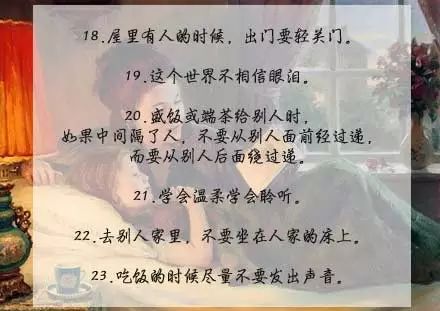 18.屋里有人的时候，出门要轻关门。
19.这个世界不相信眼泪。
20.盛饭或端茶给别人时，
如果中间隔了人，不要从别人面前经过递，
而要从别人后面绕过递。
21.学会温柔学会聆听。
22.去别人家里，不要坐在人家的床上。
23.吃饭的时候尽量不要发出声音。